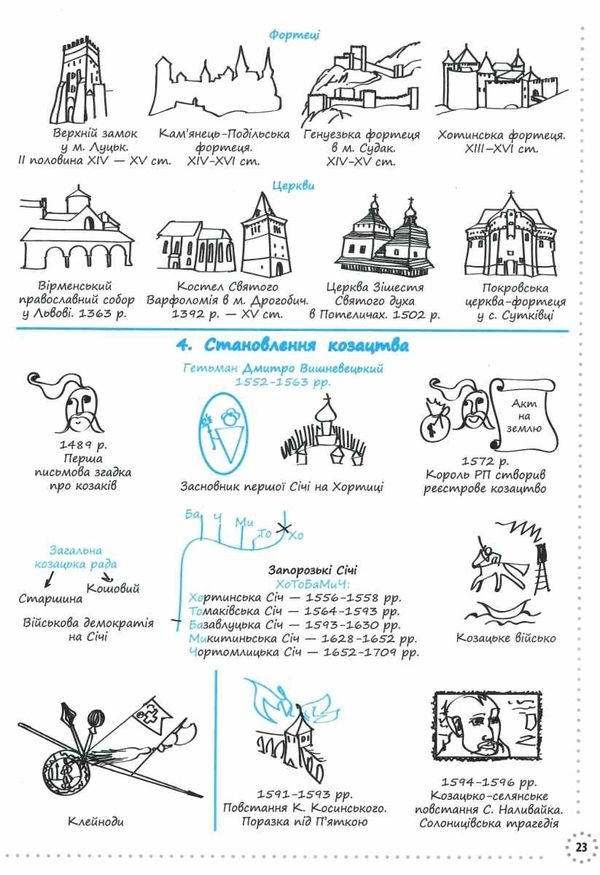 Фортеці
Верхній замок
у м. Луцьк.
ІІ половина XIV — XV ст.
Кам'янець-Подільська
фортеця.
XIV-XVI ст.
Генуезька фортеця
в м. Судак.
XIV-XV ст.
Хотинська фортеця.
XIII-XVI ст.
Церкви
Вірменський
православний собор
у Львові. 1363 р.
Костел Святого
Варфоломія в м. Дрогобич.
1392 р. — XV ст.
Церква Зішестя
Святого духа
в Потеличах. 1502 р.
Покровська
церква-фортеця
у с. Сутківці
4. Становлення козацтва
Гетьман Дмитро Вишневецький
1552-1563 рр.
1489 р.
Перша
письмова згадка
про козаків
Засновник першої Січі на Хортиці
Акт
на
землю
1572 р.
Король РП створив
реєстрове козацтво
Загальна
козацька рада
Старшина
Кошовий
Військова демократія
на Січі
Ба
Ч
Ми
То
Хо
Запорозькі Січі
ХоТоБаМиЧ:
Хортинська Січ — 1556-1558 рр.
Томаківська Січ — 1564-1593 рр.
Базавлуцька Січ — 1593-1630 рр.
Микитиньська Січ — 1628-1652 рр.
Чортомлицька Січ — 1652-1709 рр.
Козацьке військо
Клейноди
1591-1593 рр.
Повстання К. Косинського.
Поразка під П'яткою
1594-1596 рр.
Козацько-селянське
повстання С. Наливайка.
Солоницівська трагедія
23